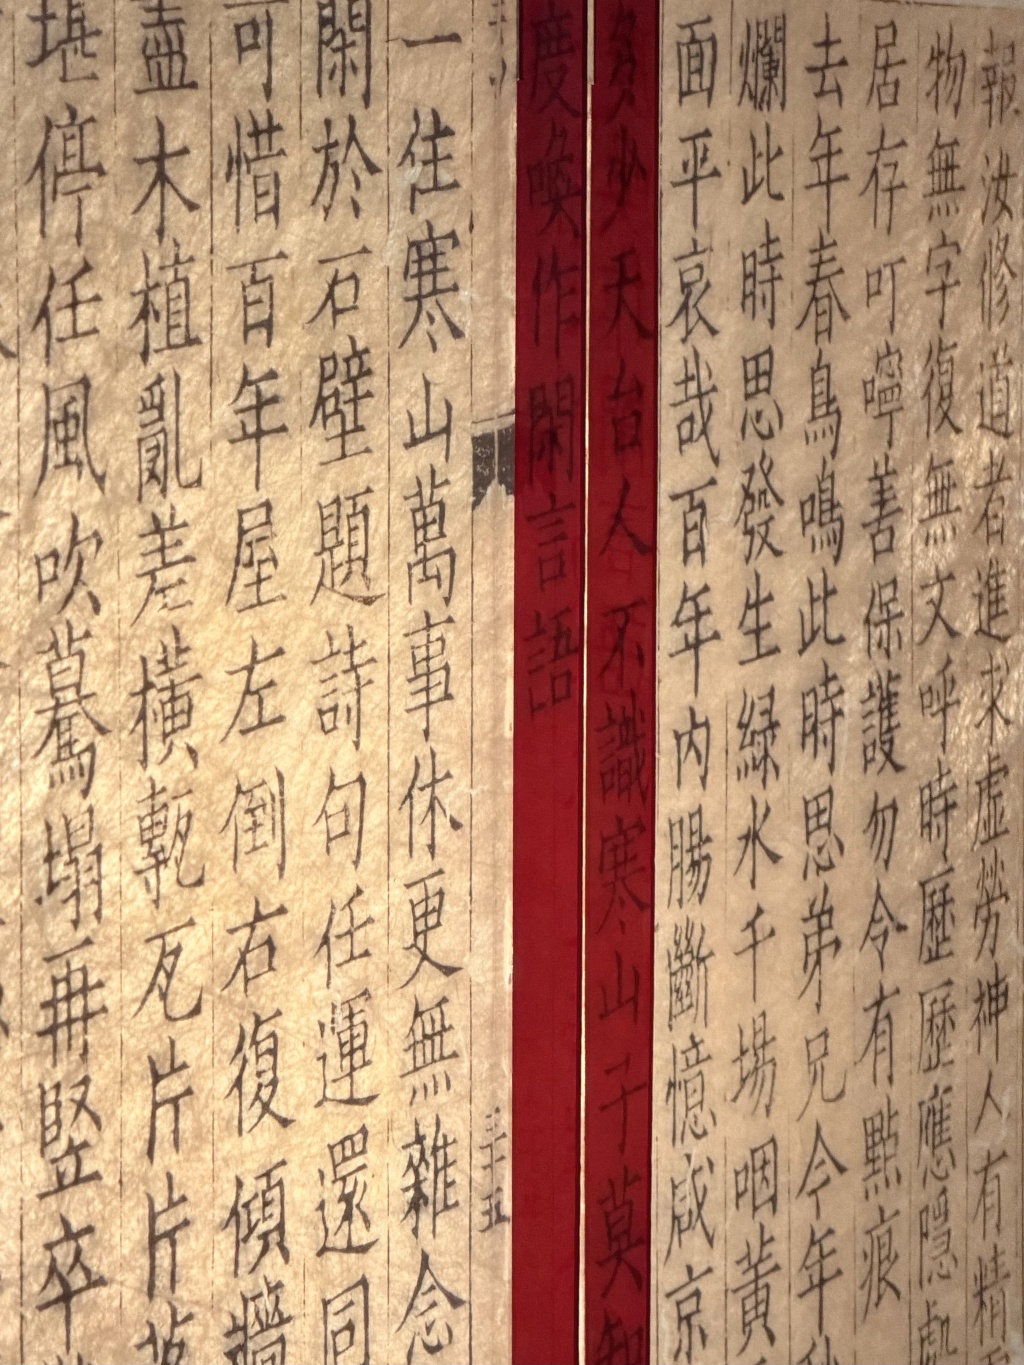 報汝修道者進求虛勞神人有精
物無字復無文呼時歷歷應隱處
居存叮嚀善保護勿令有點痕
去年春鳥鳴此時思弟兄今年
爛此時思發生綠水千場咽黃
面平哀哉百年內腸斷憶咸京
多少天台人不識寒山子莫知
度喚作閑言語
一住寒山萬事休更無雜念
閑於石壁題詩句任運還同
可惜百年屋左倒右復傾牆
盡木植亂差橫甎瓦片片落
堪停任風吹驀塌再竪卒